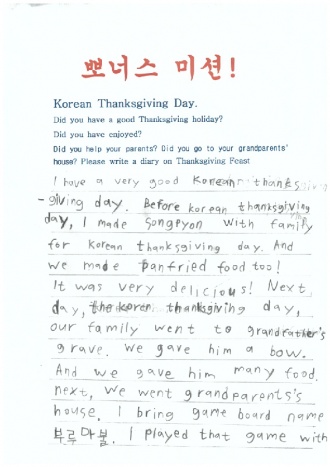 뽀너스 미션!
Korean Thanksgiving Day.
Did you have a good Thanksgiving holiday?
Did you have enjoyed?
Did you help your parents? Did you go to your grandparents'
house? Please write a diary on Thanksgiving Feast
I have a very good Korean thanks
-giving day. Before korean thanksgiving
day, I made songpyon with family
for korean thanksgiving day. And
we made panfried food too!
It was very delicious! Next
day, the koren thanksgiving day,
our family went to grandfather's
grave. we gave him a bow.
And we gave him many food.
next, we went grandparents's
house. I bring game board name
부루마불. I played that game with